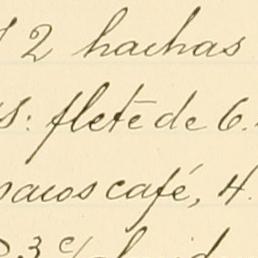 2 hachas
s: flete de 6.
pacios café, 4.
3 c/